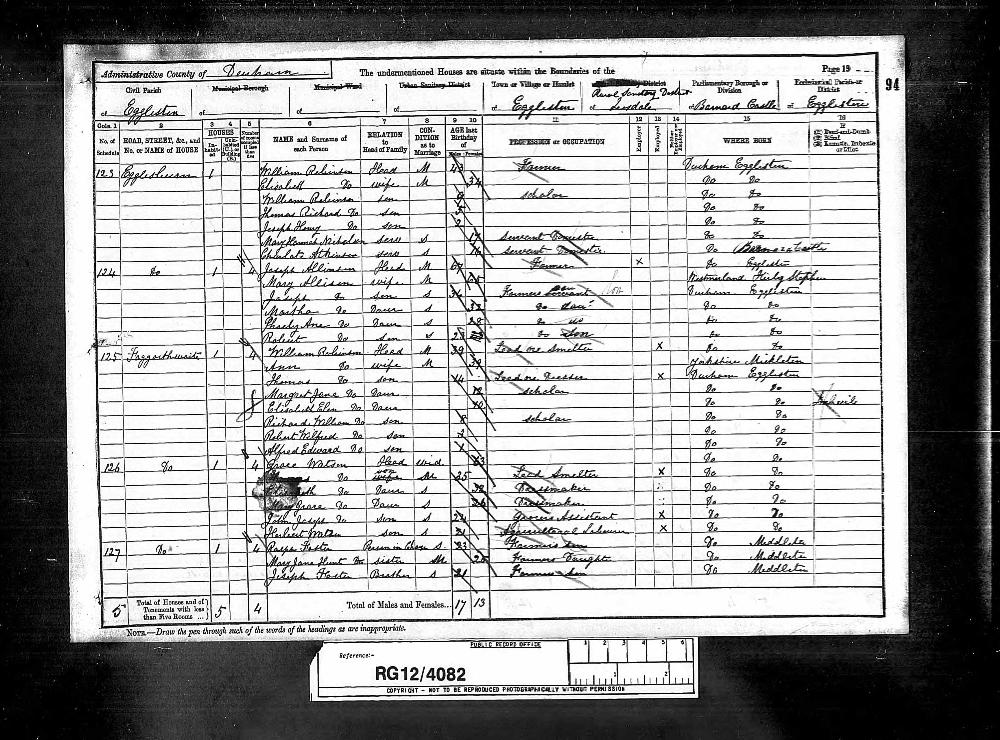 Administrative County of Durham
The undermentioned Houses are situate within the Boundaries of the
Page 19
94
Civil Parish
Municipal Borough
Municipal Ward
Urban Sanitary District
Town or Village or Hamlet
Rural Sanitary District
Parliamentary Borough or Division
Ecclesiastical Parish or District
of Egglestin
of
of
of
of Egglestin
of Teesdale
of Barnard Castle
of Egglestine
Cols. 1 2 3 4 5 6 7 8 9 10 11 12 13 14 15 16
No. of Schedule
ROAD, STREET, &c., and No. or NAME of HOUSE
HOUSES
NAME and Surname of each Person
RELATION to Head of Family
CONDITION as to Marriage
AGE last Birthday of
PROFESSION or OCCUPATION
Employer
Employed
WHERE BORN
123 1 William Robinson Head M 43 Farmer Durham Egglestin
Elisabeth Do wife M 34 Do Do
William Robinson son scholar Do Do
Thomas Richard Do son Do Do
Joseph Henry Do son Do Do
Mary Hannah Nicholson serv s Servant Domestic Do Do
Atkinson serv s Servant Domestic Do Barnard Castle
124 Do 1 4 Joseph Allinson Head M Farmer X Do Egglestin
Mary Allison wife M Westmorland Kirby Stephen
Joseph Do son s Farmers Son Durham Egglestin
Martha Do Daur s Do Daur Do Do
Ann Do Daur s Do Do Do Do
Robert Do son s Do Son Do Do
125 1 4 William Robinson Head M 39 Lead ore Smelter X Do Do
Ann Do wife M 39 Yorkshire Mickleton
Thomas Do son 14 Lead ore Dresser X Durham Egglestin
Margret Jane Do Daur scholar Do Do
Elisabeth Elen Do Daur 10 Do Do
Richard William Do son 8 scholar Do Do
Robert Wilfred Do son Do Do
Alfred Edward Do son Do Do
126 Do 1 4 Grace Watson Head wid 63 Do Do
Do son M 25 Lead Smelter X Do Do
Do Daur s Dressmaker Do Do
Mary Grace Do Daur s 26 Dressmaker Do Do
John Joseph Do son s 24 Grocers Assistant X Do Do
Herbert Watson son s 21 Agricultural Labourer X Do Do
127 Do 1 4 Ralph Foster Person in Charge s 23 Farmers Son Do Middleton
Mary Jane Hunt Do sister M Farmers Daught Do Middleton
Joseph Foster Brother s 21 Farmers Son Do Middleton
5 Total of Houses and of Tenements with less than Five Rooms ... 5 4 Total of Males and Females... 17 13
NOTE.—Draw the pen through such of the words of the headings as are inappropriate.
PUBLIC RECORD OFFICE
Reference:-
RG12/4082
COPYRIGHT - NOT TO BE REPRODUCED PHOTOGRAPHICALLY WITHOUT PERMISSION